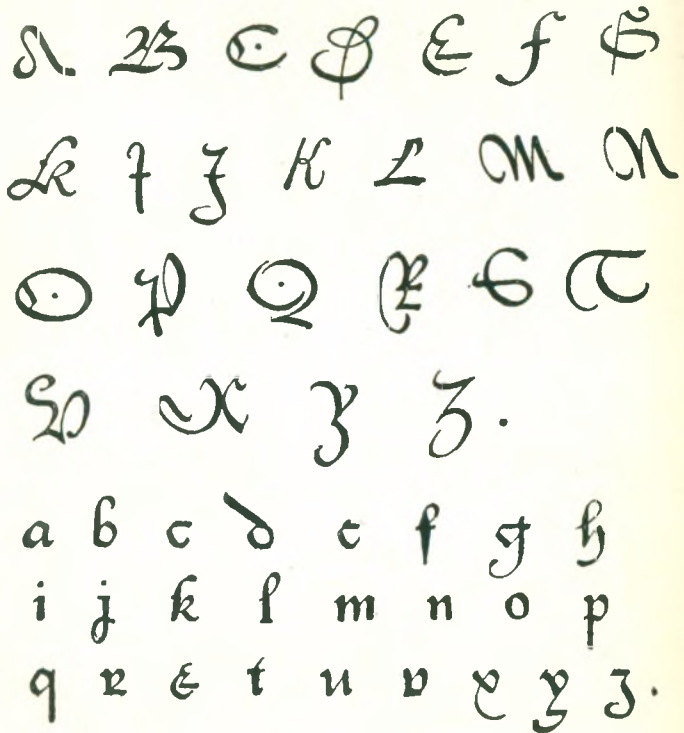 A. B C D E F G
H I J K L M N
O P Q R S T
V X Y Z .
a b c d e f g h
i j k l m n o p
q r s t u v x y z .